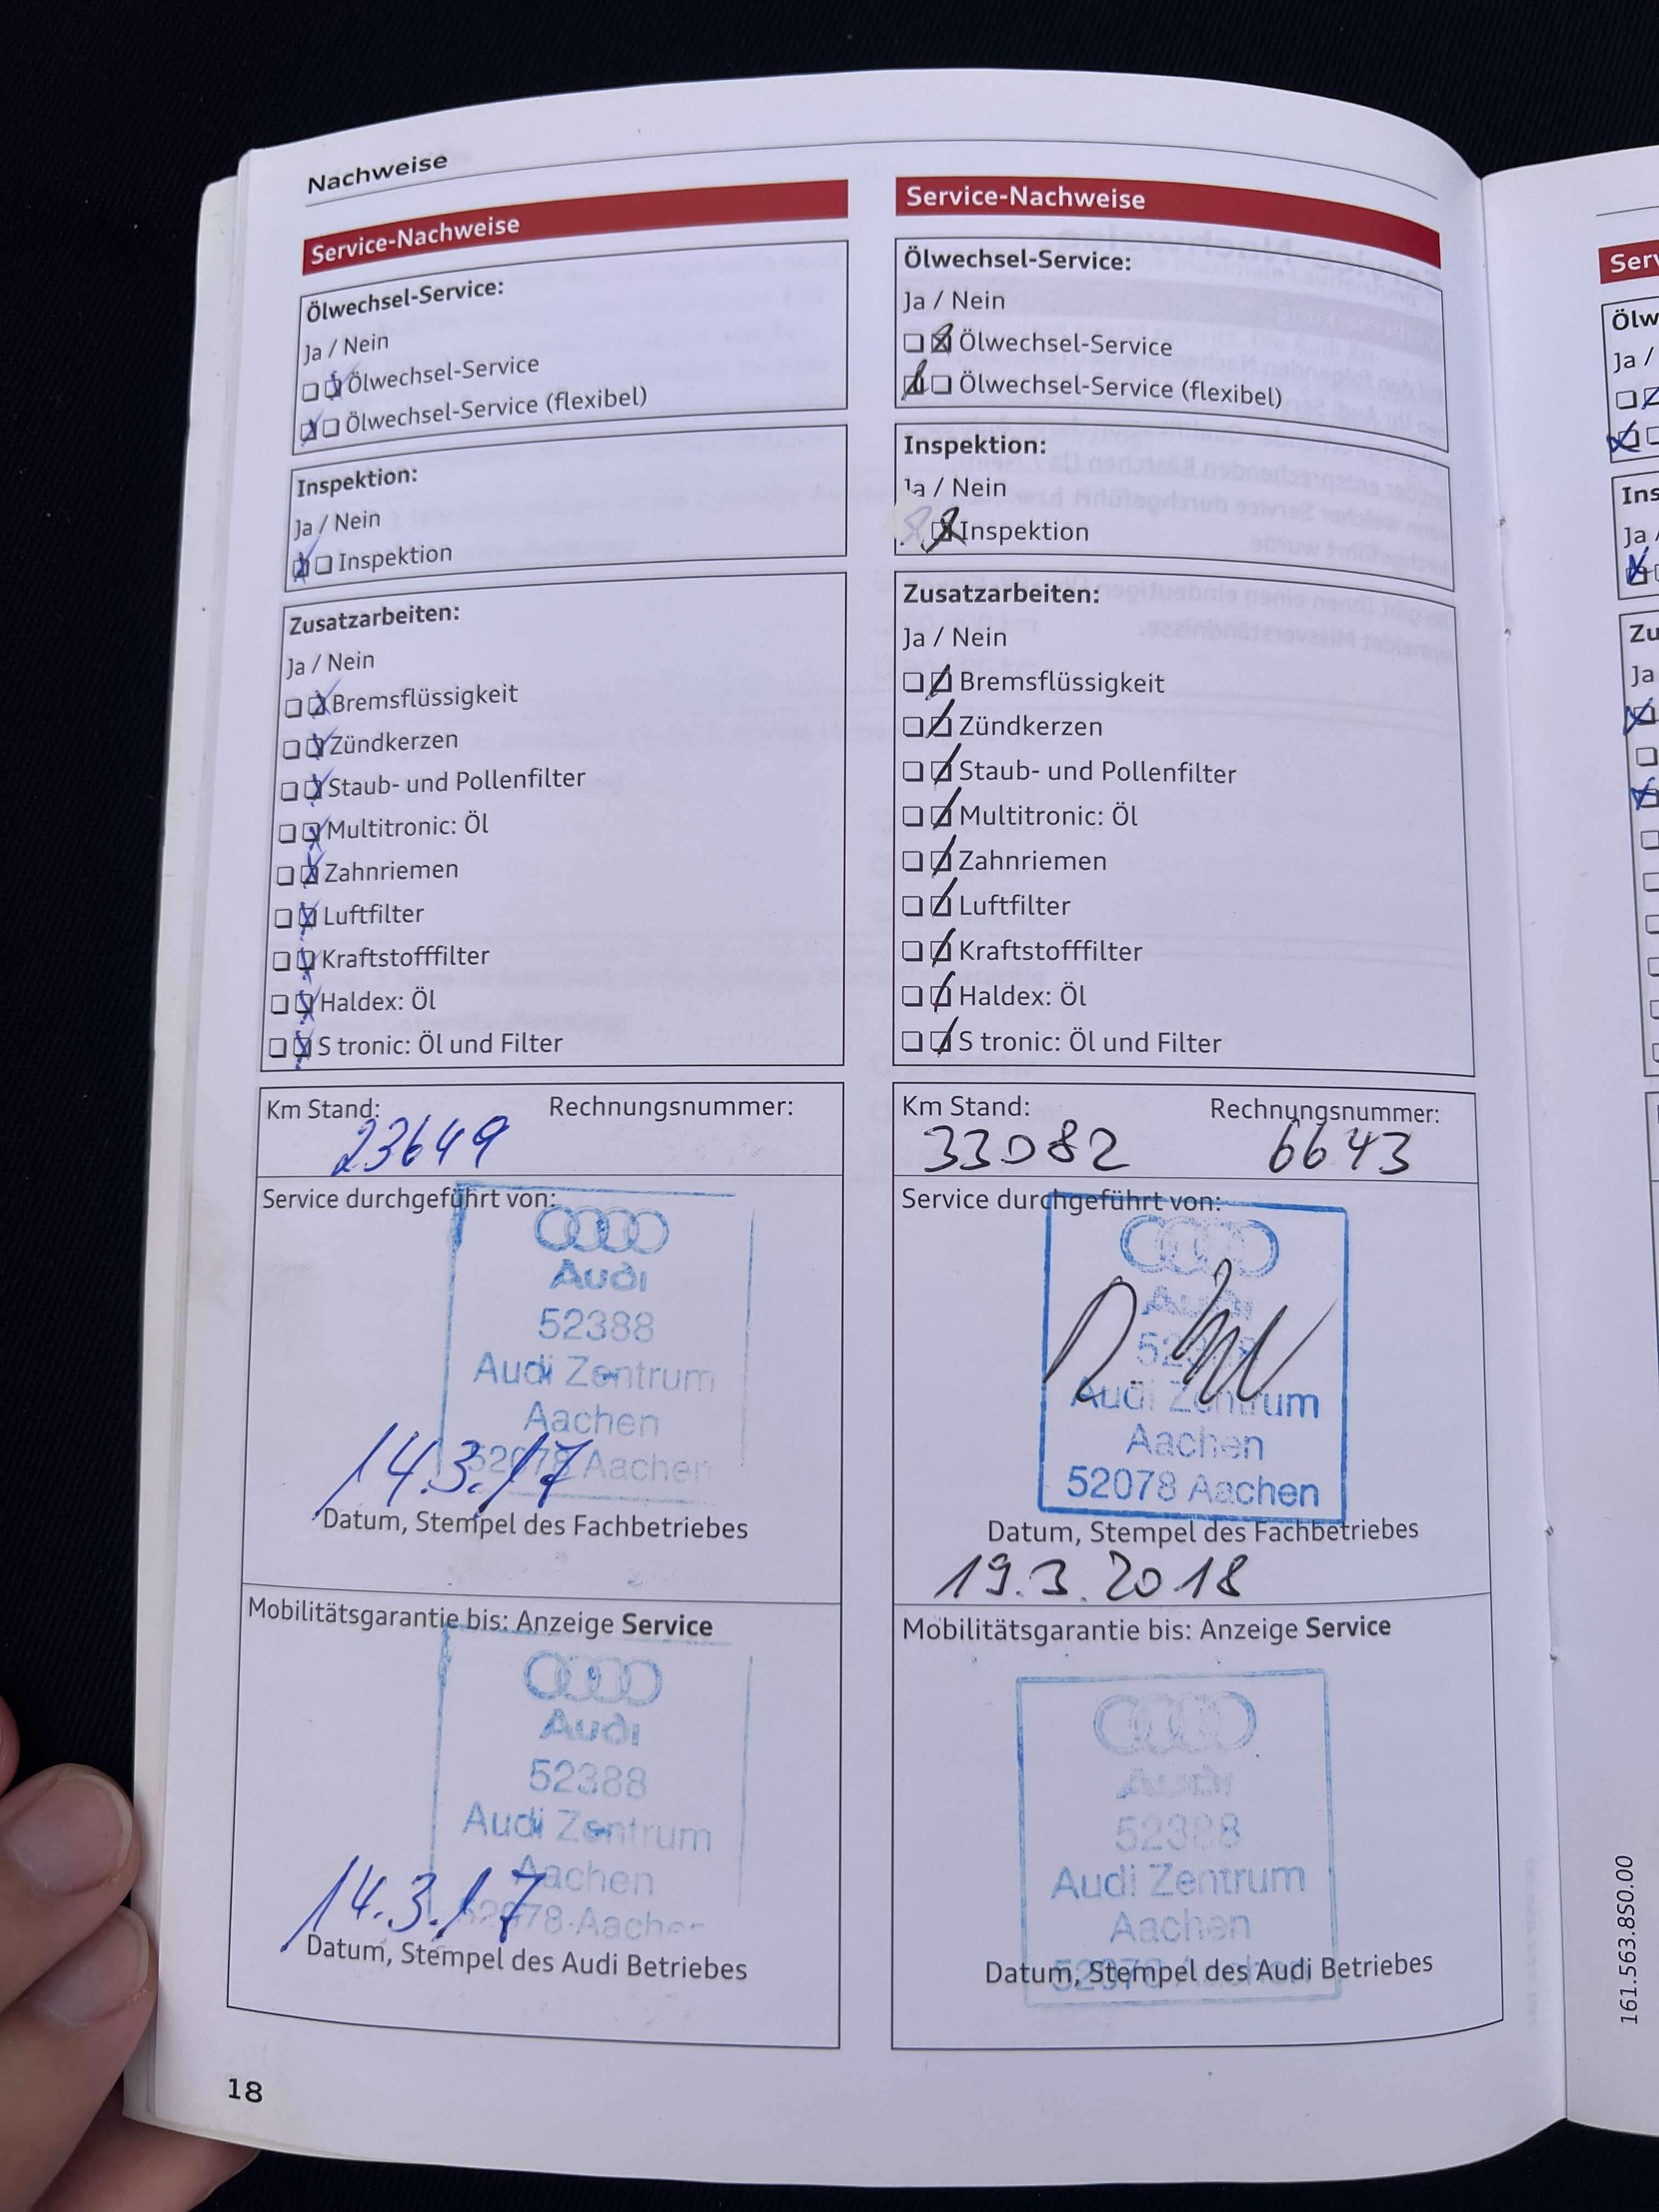 Nachweise
Service-Nachweise
Ölwechsel-Service:
Ja / Nein
Ölwechsel-Service
Ölwechsel-Service (flexibel)
Inspektion:
Ja / Nein
Inspektion
Zusatzarbeiten:
Ja / Nein
Bremsflüssigkeit
Zündkerzen
Staub- und Pollenfilter
Multitronic: Öl
Zahnriemen
Luftfilter
Kraftstofffilter
Haldex: Öl
S tronic: Öl und Filter
Km Stand: Rechnungsnummer:
23649
Service durchgeführt von:
Audi
52388
Audi Zentrum
Aachen
52078 Aachen
14.3.17
Datum, Stempel des Fachbetriebes
Mobilitätsgarantie bis: Anzeige Service
Audi
52388
Audi Zentrum
Aachen
52078 Aachen
14.3.17
Datum, Stempel des Audi Betriebes
18
Service-Nachweise
Ölwechsel-Service:
Ja / Nein
Ölwechsel-Service
Ölwechsel-Service (flexibel)
Inspektion:
Ja / Nein
Inspektion
Zusatzarbeiten:
Ja / Nein
Bremsflüssigkeit
Zündkerzen
Staub- und Pollenfilter
Multitronic: Öl
Zahnriemen
Luftfilter
Kraftstofffilter
Haldex: Öl
S tronic: Öl und Filter
Km Stand: Rechnungsnummer:
33082 6643
Service durchgeführt von:
Audi
52388
Audi Zentrum
Aachen
52078 Aachen
Datum, Stempel des Fachbetriebes
19.3.2018
Mobilitätsgarantie bis: Anzeige Service
Audi
52388
Audi Zentrum
Aachen
52078 Aachen
Datum, Stempel des Audi Betriebes
Serv
Ölw
Ja /
Ins
Ja /
Zu
Ja
161.563.8S0.00